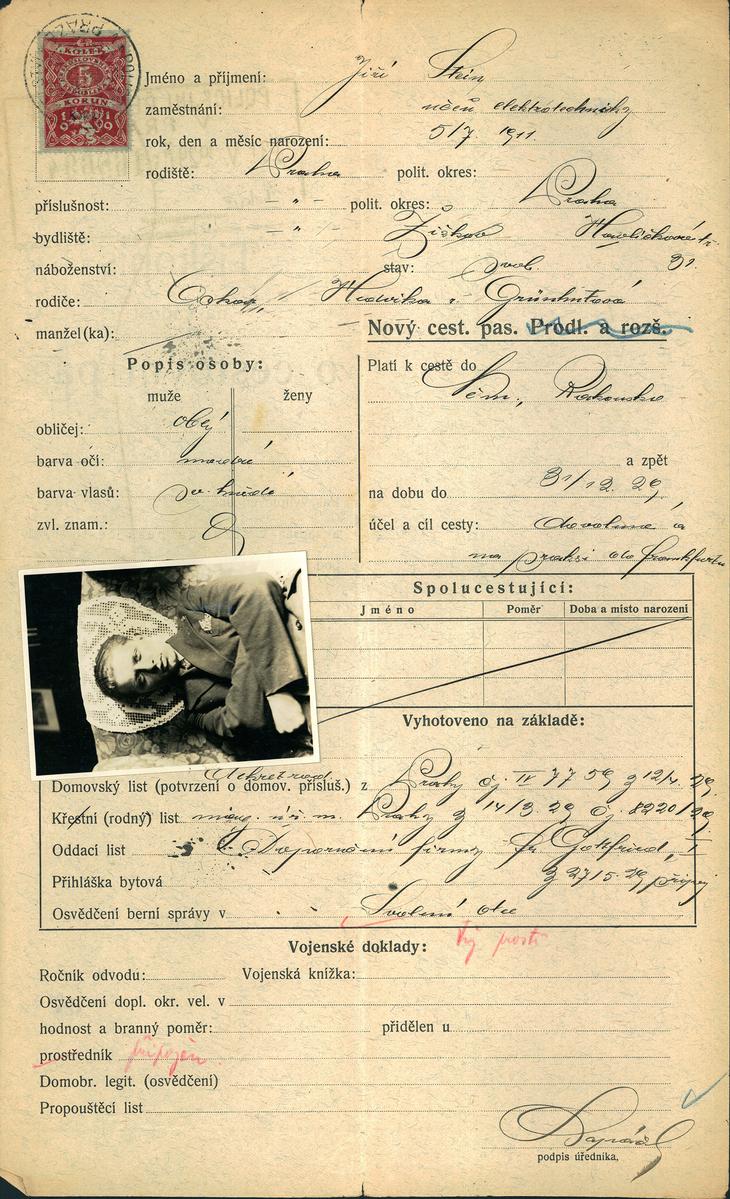 KOLEK
5
KORUN
1919
Jméno a příjmení: Jiří Stein
zaměstnání: učeň elektrotechniky
rok, den a měsíc narození: 5/7. 1911.
rodiště: Praha polit. okres: Praha
příslušnost: - " - polit. okres:
bydliště: - " - Žižkov Havlíčkova
31.
náboženství: stav: svob.
rodiče: Oskar, Hedvika r. Grünhutová
manžel(ka):
Nový cest. pas. Prodl. a rozš.
Popis osoby:
muže ženy
obličej: oblý
barva očí: modré
barva vlasů: sv. hnědé
zvl. znam.:
Platí k cestě do
Něm., Rakouska
a zpět
na dobu do 31/12. 29.
účel a cíl cesty: dovolená a
na praksi do Frankfurtu
Spolucestující:
Jméno Poměr Doba a místo narození
Vyhotoveno na základě:
Domovský list (potvrzení o domov. přísluš.) z Prahy čj. IV 7759 z 12/4. 29.
Křestní (rodný) list m. Prahy z 14/3. 29 čj. 8220/29
Oddací list Doporučení firmy Fr. Gottfried,
Přihláška bytová z 27/5. 29
Osvědčení berní správy v Svolení otce
Vojenské doklady:
Ročník odvodu: Vojenská knížka:
Osvědčení dopl. okr. vel. v
hodnost a branný poměr: přidělen u
prostředník připojen
Domobr. legit. (osvědčení)
Propouštěcí list
podpis úředníka.